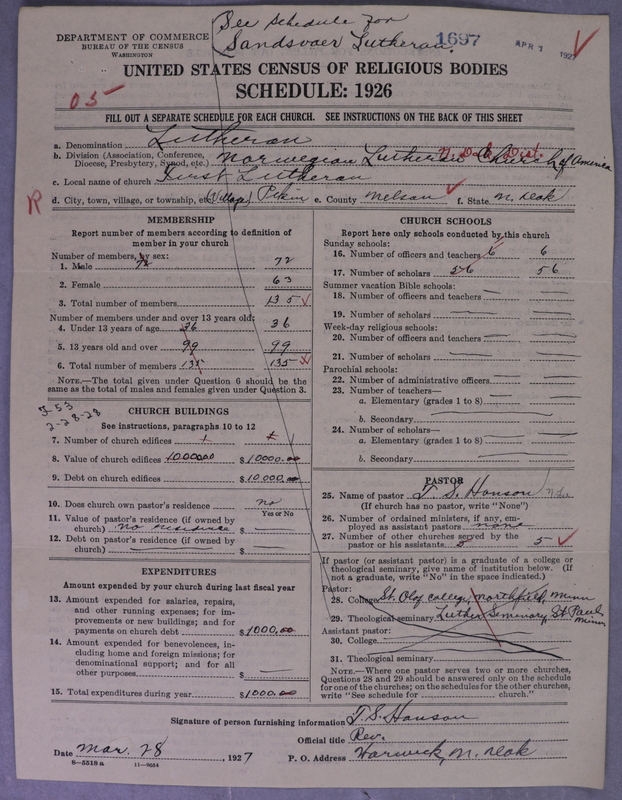 See Schedule for
Sandsvaer Lutheran.
1697
APR 1 1927
DEPARTMENT OF COMMERCE
BUREAU OF THE CENSUS
WASHINGTON
UNITED STATES CENSUS OF RELIGIOUS BODIES
SCHEDULE: 1926
05
FILL OUT A SEPARATE SCHEDULE FOR EACH CHURCH. SEE INSTRUCTIONS ON THE BACK OF THIS SHEET
a. Denomination Lutheran
b. Division (Association, Conference, Diocese, Presbytery, Synod, etc.) Norwegian Lutheran Church of America
N. Dak. Dist.
c. Local name of church First Lutheran
R
d. City, town, village, or township, etc. (Village) Pekin e. County Nelson f. State N. Dak
MEMBERSHIP
Report number of members according to definition of
member in your church
Number of members, by sex:
1. Male 72 72
2. Female 63
3. Total number of members 135
Number of members under and over 13 years old:
4. Under 13 years of age 36 36
5. 13 years old and over 99 99
6. Total number of members 135 135
NOTE.—The total given under Question 6 should be the
same as the total of males and females given under Question 3.
2-28-28
CHURCH BUILDINGS
See instructions, paragraphs 10 to 12
7. Number of church edifices 1 1
8. Value of church edifices 10,000.00 $ 10000.00
9. Debt on church edifices $ 10,000.00
10. Does church own pastor's residence no
Yes or No
11. Value of pastor's residence (if owned by
church) no residence $
12. Debt on pastor's residence (if owned by
church) $
EXPENDITURES
Amount expended by your church during last fiscal year
13. Amount expended for salaries, repairs,
and other running expenses; for im-
provements or new buildings; and for
payments on church debt $ 1000.00
14. Amount expended for benevolences, in-
cluding home and foreign missions; for
denominational support; and for all
other purposes $
15. Total expenditures during year $ 1000.00
CHURCH SCHOOLS
Report here only schools conducted by this church
Sunday schools:
16. Number of officers and teachers 6 6
17. Number of scholars 56 56
Summer vacation Bible schools:
18. Number of officers and teachers
19. Number of scholars
Week-day religious schools:
20. Number of officers and teachers
21. Number of scholars
Parochial schools:
22. Number of administrative officers
23. Number of teachers—
a. Elementary (grades 1 to 8)
b. Secondary
24. Number of scholars—
a. Elementary (grades 1 to 8)
b. Secondary
PASTOR
25. Name of pastor T. S. Hanson
(If church has no pastor, write "None")
26. Number of ordained ministers, if any, em-
ployed as assistant pastors none
27. Number of other churches served by the
pastor or his assistants 5 5
If pastor (or assistant pastor) is a graduate of a college or
theological seminary, give name of institution below. (If
not a graduate, write "No" in the space indicated.)
Pastor:
28. College St. Olaf College, Northfield, Minn
29. Theological seminary Luther Seminary, St Paul Minn
Assistant pastor:
30. College
31. Theological seminary
NOTE.—Where one pastor serves two or more churches,
Questions 28 and 29 should be answered only on the schedule
for one of the churches; on the schedules for the other churches,
write "See schedule for church."
Signature of person furnishing information T. S. Hanson
Official title Rev.
Date Mar. 28, 1927 P. O. Address Warwick, N. Dak
8-5518a 11-9654